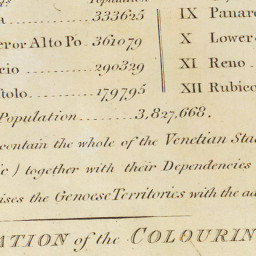 Population
333625 IX Panaro
eror Alto Po 361079 X Lower
cio 290329 XI Reno
tolo 179795 XII Rubico
Population 3,827,668.
contain the whole of the Venetian Sta
ic) together with their Dependencies
ises the Genoese Territories with the ad
ATION of the COLOURIN